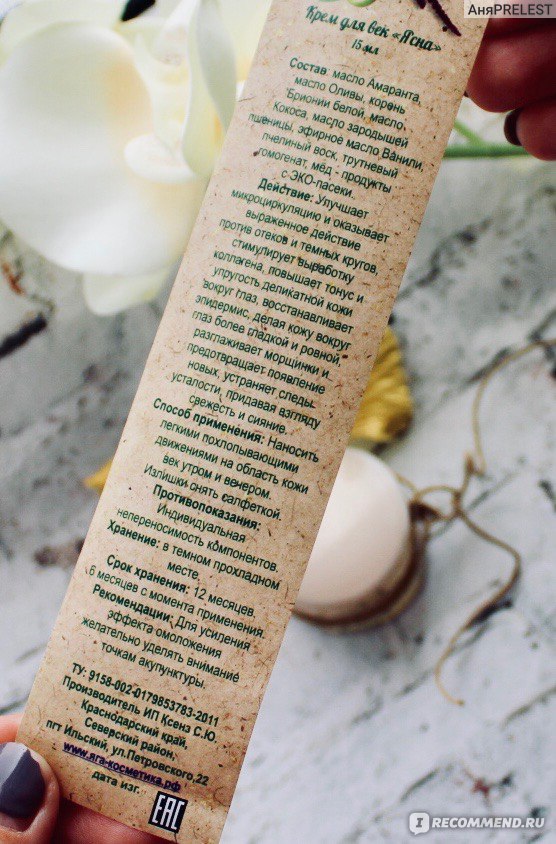 АняPRELEST
Крем для век «Ясна»
15 мл
Состав: масло Амаранта,
масло Оливы, корень
Брионии белой, масло
Кокоса, масло зародышей
пшеницы, эфирное масло Ванили,
пчелиный воск, трутневый
гомогенат, мёд - продукты
с ЭКО-пасеки.
Действие: Улучшает
микроциркуляцию и оказывает
выраженное действие
против отеков и темных кругов,
стимулирует выработку
коллагена, повышает тонус и
упругость деликатной кожи
вокруг глаз, восстанавливает
эпидермис, делая кожу вокруг
глаз более гладкой и ровной,
разглаживает морщинки и
предотвращает появление
новых, устраняет следы
усталости, придавая взгляду
свежесть и сияние.
Способ применения: Наносить
легкими похлопывающими
движениями на область кожи
век утром и вечером.
Излишки снять салфеткой.
Противопоказания:
Индивидуальная
непереносимость компонентов.
Хранение: в темном прохладном
месте.
Срок хранения: 12 месяцев,
6 месяцев с момента применения.
Рекомендации: Для усиления
эффекта омоложения
желательно уделять внимание
точкам акупунктуры.
ТУ: 9158-002-0179853783-2011
Производитель ИП Ксенз С.Ю.
Краснодарский край,
Северский район,
пгт Ильский, ул.Петровского,22
www.яга-косметика.рф
дата изг.
EAC
IRECOMMEND.RU